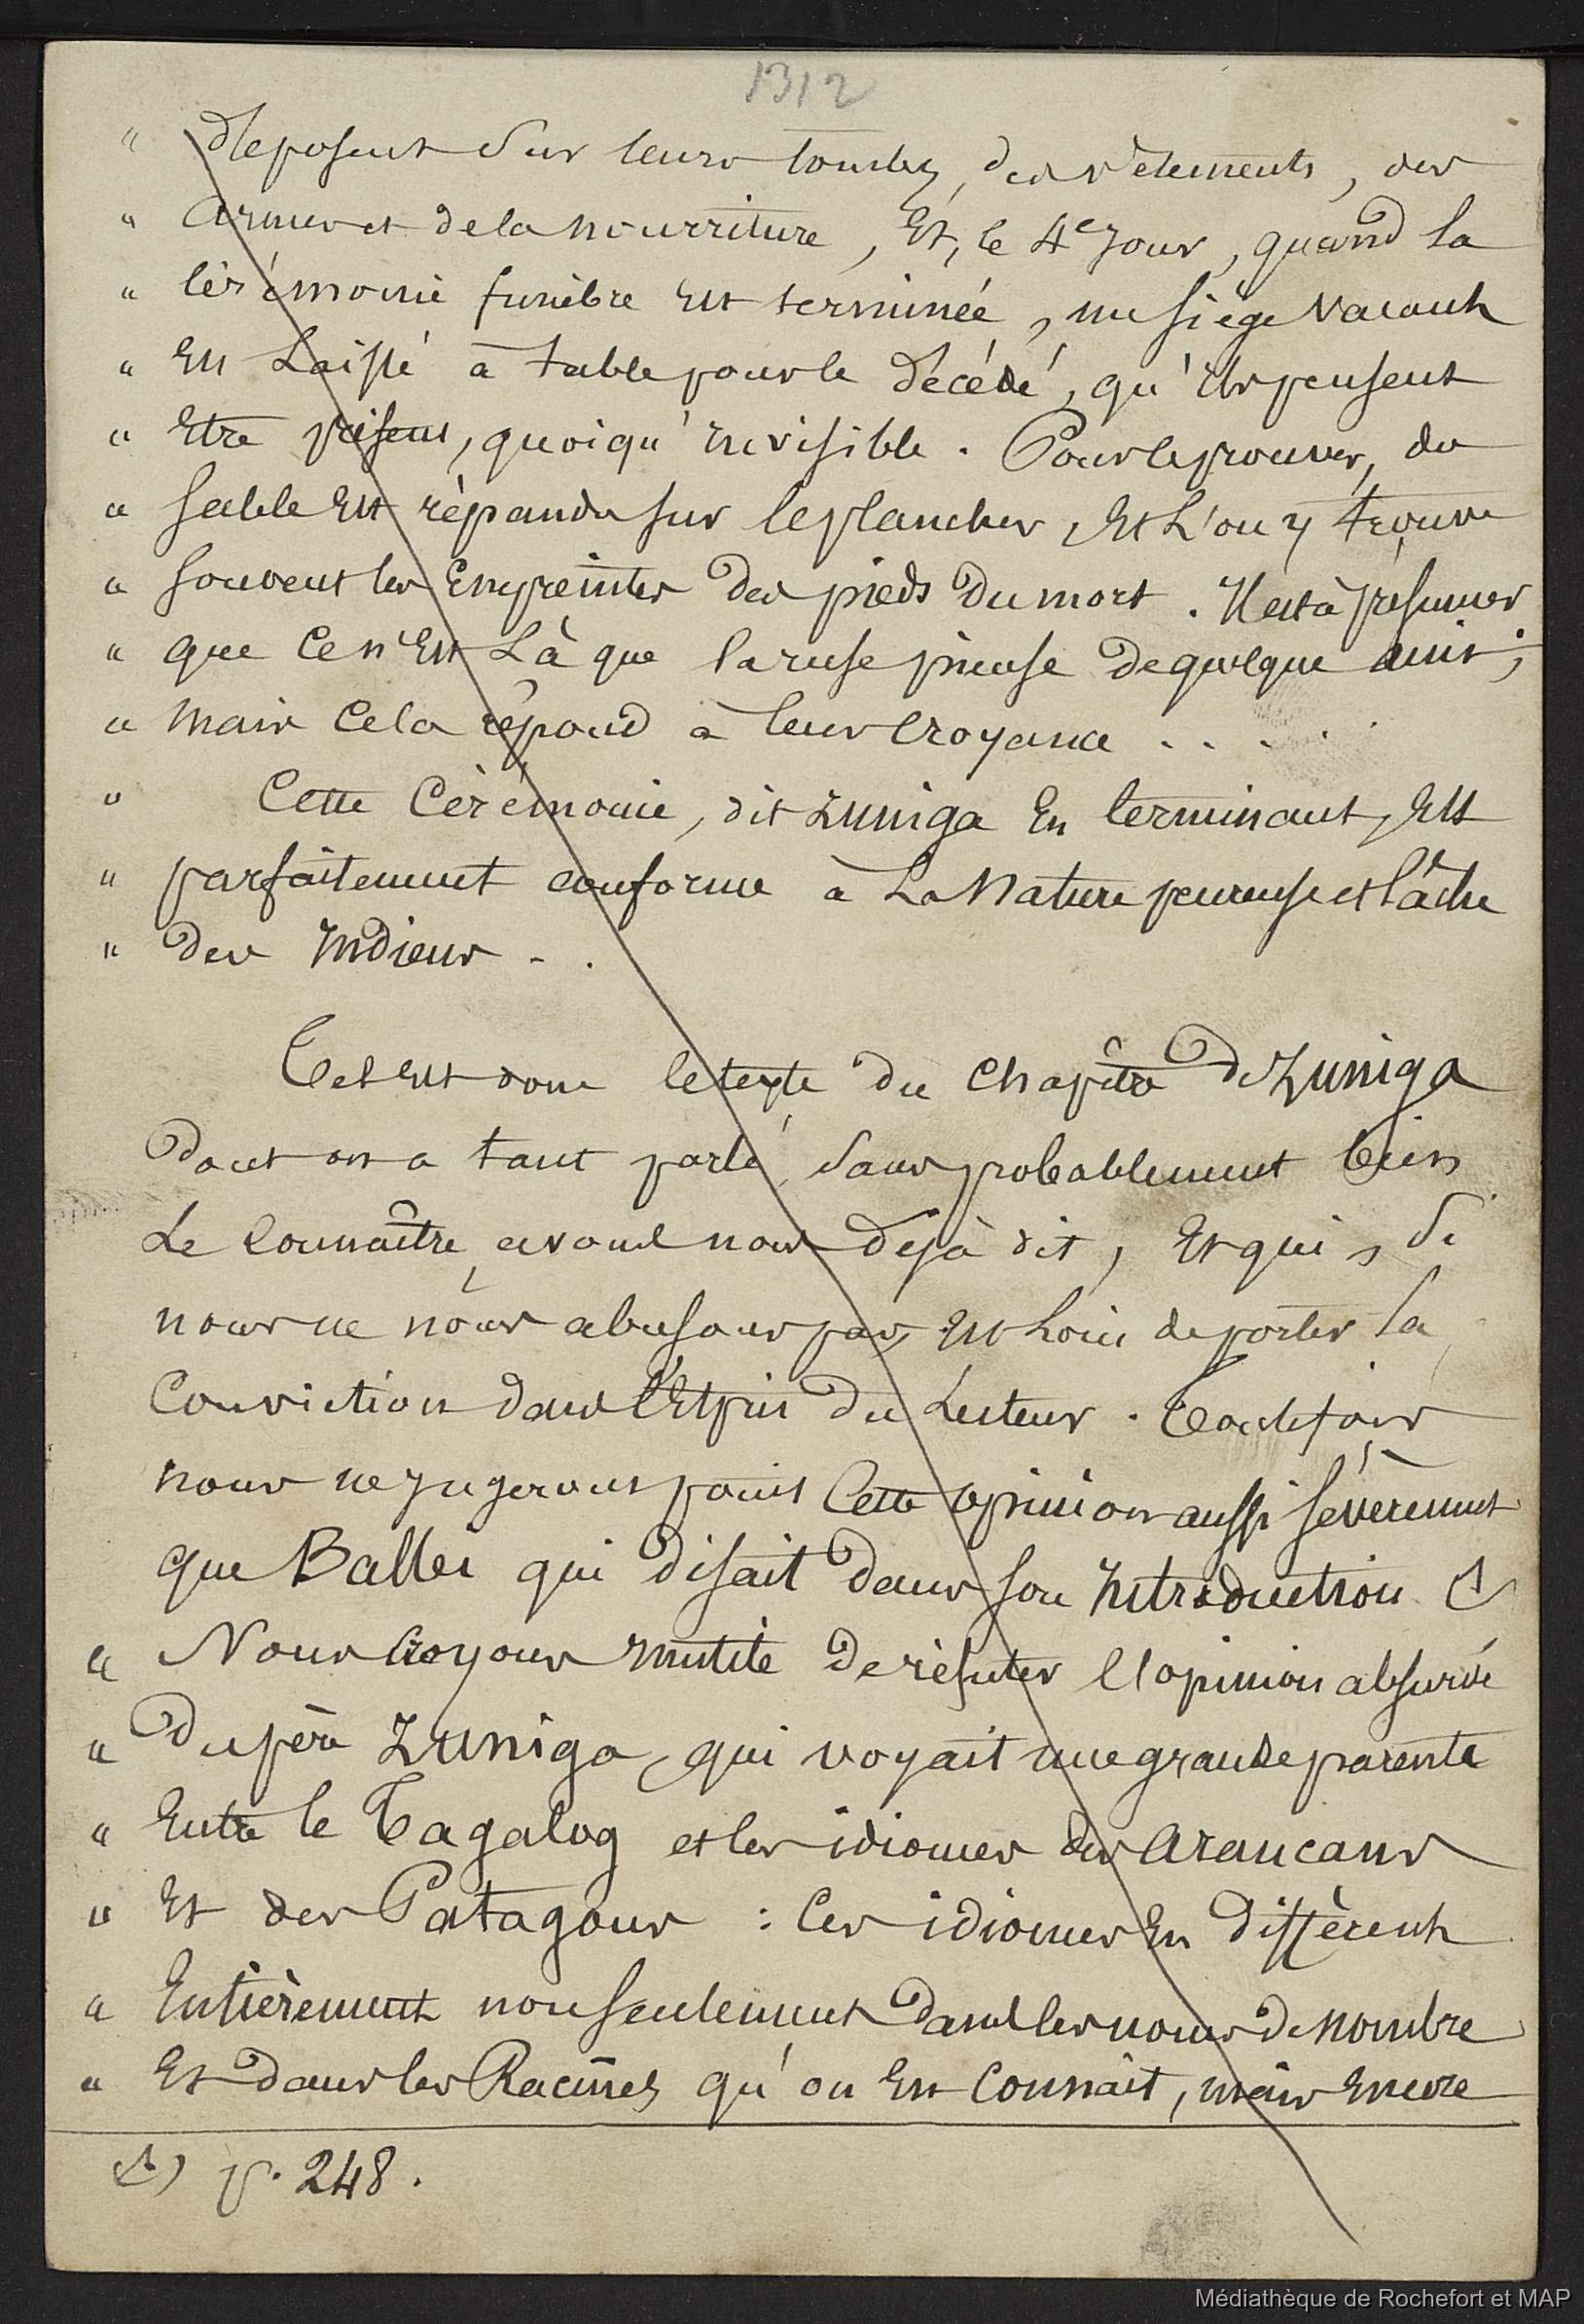 1312
" déposent sur leurs tombes, des vêtements, des
" armes et de la nourriture, Et, le 4e jour, quand la
" cérémonie funèbre Est terminée, un siège vacant
" Est Laissé à table pour le décédé, qu'ils pensent
" Etre présent, quoiqu'invisible. Pour le prouver, du
" sable Est répandu sur le plancher, Et L'on y trouve
" souvent les Empreintes des pieds du mort. Il est à présumer
" que ce n'Est Là que la ruse pieuse de quelque ami;
" Mais cela répond à leur croyance . . . .
" Cette Cérémonie, dit Zuniga En terminant, Est
" parfaitement conforme à La Nature peureuse et lâche
" des Indiens . .
Tel Est donc le texte du Chapître de Zuniga
dont on a tant parlé, sans probablement bien
Le connaître, avons nous déjà dit, Et qui, si
nous ne nous abusons pas, Est Loin de porter la
Conviction dans l'Esprit du Lecteur. Toutefois
nous ne jugerons point Cette opinion aussi sévèrement
que Balbi qui disait dans son Introduction (1)
" Nous croyons inutile de réfuter l'opinion absurde
" du père Zuniga, qui voyait une grande parenté
" Entre le Tagalog et les idiomes des Araucans
" Et des Patagons : Ces idiomes En diffèrent
" Entièrement non seulement dans les noms de nombre
" Et dans les Racines qu'on En Connait, mais Encore
(1) p. 248.
Médiathèque de Rochefort et MAP